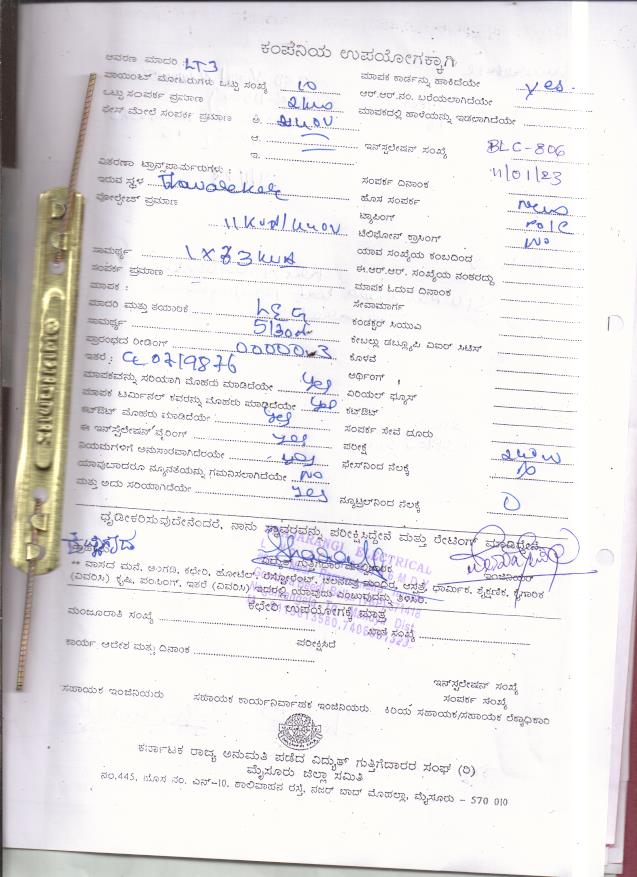 ಕಂಪೆನಿಯ ಉಪಯೋಗಕ್ಕಾಗಿ
ಆವರಣ ಮಾದರಿ LT3
ಪಾಯಿಂಟ್ ಮೀಟರುಗಳು ಒಟ್ಟು ಸಂಖ್ಯೆ 10 ಮಾಪಕ ಕಾರ್ಡನ್ನು ಹಾಕಿದೆಯೇ yes.
ಒಟ್ಟು ಸಂಪರ್ಕ ಪ್ರಮಾಣ ಆರ್.ಆರ್.ನಂ. ಬರೆಯಲಾಗಿದೆಯೇ
ಫೇಸ್ ಮೇಲೆ ಸಂಪರ್ಕ ಪ್ರಮಾಣ ಮಾಪಕದಲ್ಲಿ ಹಾಳೆಯನ್ನು ಇಡಲಾಗಿದೆಯೇ
ಆ. ಇನ್‌ಸ್ಟಲೇಷನ್ ಸಂಖ್ಯೆ BLC-806
ಇ.
ವಿತರಣಾ ಟ್ರಾನ್ಸ್‌ಪಾರ್ಮರುಗಳು : ಸಂಪರ್ಕ ದಿನಾಂಕ 11/01/23
ಇರುವ ಸ್ಥಳ ಹೊಸ ಸಂಪರ್ಕ New
ವೋಲ್ಟೇಜ್ ಪ್ರಮಾಣ ಟ್ಯಾಪಿಂಗ್ Pole
ಟೆಲಿಫೋನ್ ಕ್ರಾಸಿಂಗ್ No
ಸಾಮರ್ಥ್ಯ 1 X 63 KVA ಯಾವ ಸಂಖ್ಯೆಯ ಕಂಬದಿಂದ
ಸಂಪರ್ಕ ಪ್ರಮಾಣ ಈ.ಆರ್.ಆರ್. ಸಂಖ್ಯೆಯ ನಂತರದ್ದು
ಮಾಪಕ : ಮಾಪಕ ಓದುವ ದಿನಾಂಕ
ಮಾದರಿ ಮತ್ತು ತಯಾರಿಕೆ L&G ಸೇವಾಮಾರ್ಗ
ಸಾಮರ್ಥ್ಯ 5/30A ಕಂಡಕ್ಟರ್ ಸಿಯುಎ
ಪ್ರಾರಂಭದ ರೀಡಿಂಗ್ 00000.3 ಕೇಬಲ್ಲು ಡಬ್ಲ್ಯೂಪಿ ವಿಐಆರ್ ಸಿಟಿಸ್
ಇತರೆ : 07/9876 ಕೊಳವೆ
ಮಾಪಕವನ್ನು ಸರಿಯಾಗಿ ಮೊಹರು ಮಾಡಿದೆಯೇ yes ಆರ್ಥಿಂಗ್
ಮಾಪಕ ಟರ್ಮಿನಲ್ ಕವರನ್ನು ಮೊಹರು ಮಾಡಿದೆಯೇ yes ಏರಿಯಲ್ ಫ್ಯೂಸ್
ಕಟ್‌ಔಟ್ ಮೊಹರು ಮಾಡಿದೆಯೇ yes ಕಟ್‌ಔಟ್
ಈ ಇನ್‌ಸ್ಟಲೇಷನ್ ವೈರಿಂಗ್ yes ಸಂಪರ್ಕ ಸೇವೆ ದೂರು
ನಿಯಮಗಳಿಗೆ ಅನುಸಾರವಾಗಿದೆಯೇ yes ಪರೀಕ್ಷೆ
ಯಾವುದಾದರೂ ನ್ಯೂನತೆಯನ್ನು ಗಮನಿಸಲಾಗಿದೆಯೇ No ಫೇಸ್‌ನಿಂದ ನೆಲಕ್ಕೆ
ಮತ್ತು ಅದು ಸರಿಯಾಗಿದೆಯೇ yes ನ್ಯೂಟ್ರಲ್‌ನಿಂದ ನೆಲಕ್ಕೆ 0
ಧೃಡೀಕರಿಸುವುದೇನೆಂದರೆ, ನಾನು ಸ್ಥಾವರವನ್ನು ಪರೀಕ್ಷಿಸಿದ್ದೇನೆ ಮತ್ತು ರೇಟಿಂಗ್ ಮಾಡಿದ್ದೇನೆ
ELECTRICAL
ವಿದ್ಯುತ್ ಗುತ್ತಿಗೆದಾರ ಇಂಜಿನಿಯರ್
** ವಾಸದ ಮನೆ, ಅಂಗಡಿ, ಕಛೇರಿ, ಹೋಟೆಲ್, ರೆಸ್ಟೋರೆಂಟ್, ಚಲನಚಿತ್ರ ಮಂದಿರ, ಆಸ್ಪತ್ರೆ, ಧಾರ್ಮಿಕ, ಶೈಕ್ಷಣಿಕ, ಕೈಗಾರಿಕ
(ವಿವರಿಸಿ) ಕೃಷಿ, ಪಂಪಿಂಗ್, ಇತರೆ (ವಿವರಿಸಿ) ಇದರಲ್ಲಿ ಯಾವುದು ಎಂಬುವುದನ್ನು ತಿಳಿಸಿರಿ.
ಕಛೇರಿ ಉಪಯೋಗಕ್ಕೆ ಮಾತ್ರ
ಮಂಜೂರಾತಿ ಸಂಖ್ಯೆ ಖಾತೆ ಸಂಖ್ಯೆ
ಪರೀಕ್ಷಿಸಿದೆ
ಕಾರ್ಯ ಆದೇಶ ಮತ್ತು ದಿನಾಂಕ
ಇನ್‌ಸ್ಟಲೇಷನ್ ಸಂಖ್ಯೆ
ಸಂಪರ್ಕ ಸಂಖ್ಯೆ
ಸಹಾಯಕ ಇಂಜಿನಿಯರು ಸಹಾಯಕ ಕಾರ್ಯನಿರ್ವಾಹಕ ಇಂಜಿನಿಯರು. ಕಿರಿಯ ಸಹಾಯಕ/ಸಹಾಯಕ ಲೆಕ್ಕಾಧಿಕಾರಿ
ಕರ್ನಾಟಕ ರಾಜ್ಯ ಅನುಮತಿ ಪಡೆದ ವಿದ್ಯುತ್ ಗುತ್ತಿಗೆದಾರರ ಸಂಘ (ರಿ)
ಮೈಸೂರು ಜಿಲ್ಲಾ ಸಮಿತಿ
ನಂ.445, ಹೊಸ ನಂ. ಎನ್-10, ಶಾಲಿವಾಹನ ರಸ್ತೆ, ನಜರ್ ಬಾದ್ ಮೊಹಲ್ಲಾ, ಮೈಸೂರು - 570 010